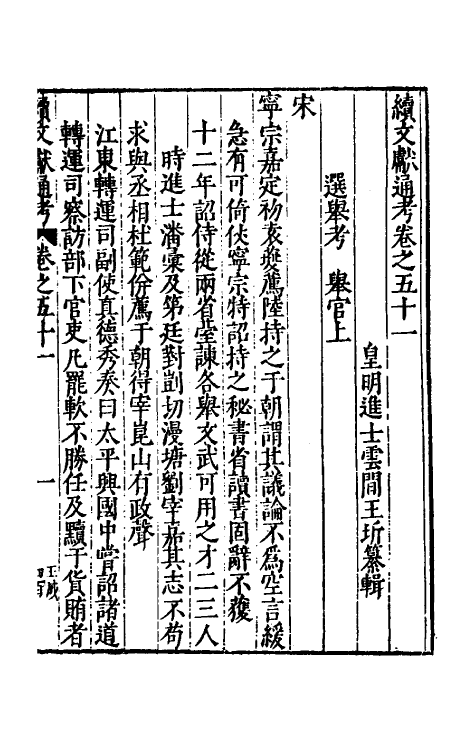 續文獻通考卷之五十一
皇明進士雲間王圻纂輯
選舉考　舉官上
宋
寧宗嘉定初袁燮薦陸持之于朝謂其議論不為空言緩
急有可倚仗寧宗特詔持之秘書省讀書固辭不獲
十二年詔侍從兩省臺諫各舉文武可用之才二三人
時進士潘彙及第廷對剴切漫塘劉宰嘉其志不苟
求與丞相杜範份薦于朝得宰崑山有政聲
江東轉運司副使真德秀奏曰太平興國中嘗詔諸道
轉運司察訪部下官吏凡罷軟不勝任及黷于貨賄者
續文獻通考 卷之五十一 一